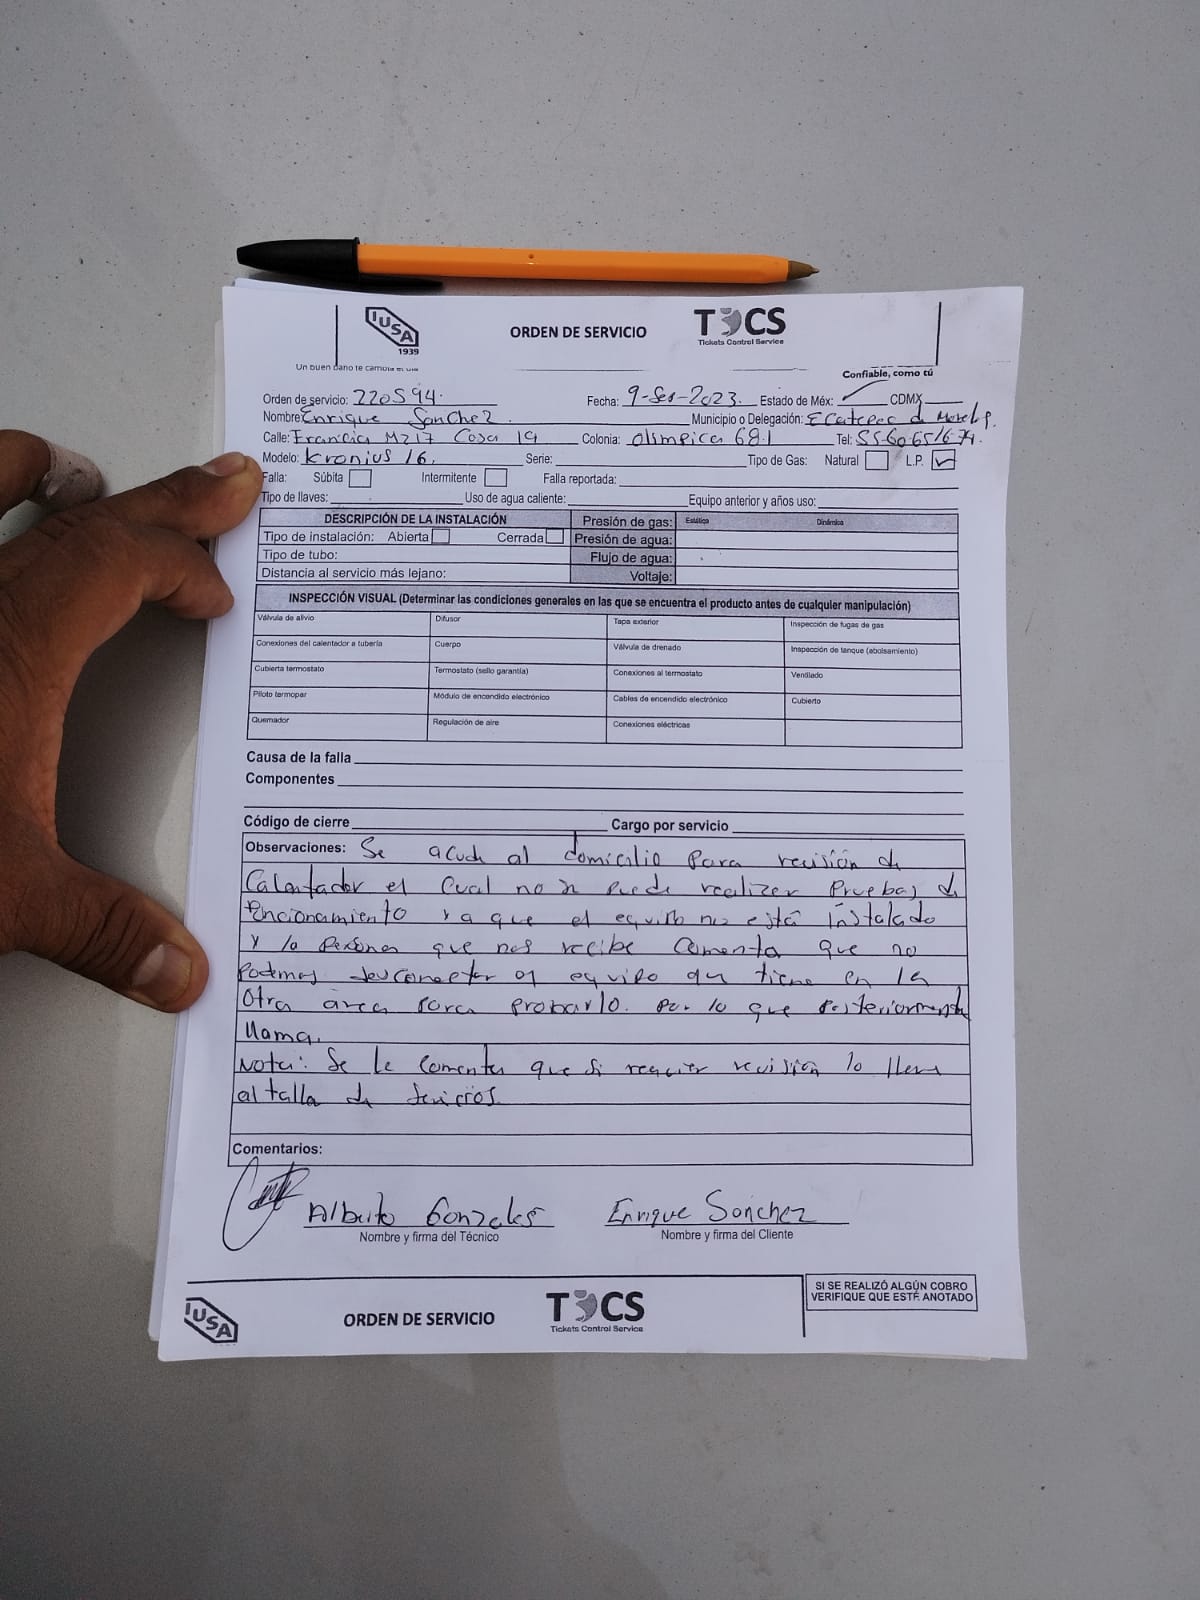 IUSA
1939
ORDEN DE SERVICIO
TCS
Tickets Control Service
Un buen baño te cambia el día
Confiable, como tú
Orden de servicio: 220594. Fecha: 9-Sep-2023. Estado de Méx: ✓ CDMX
Nombre: Enrique Sanchez Municipio o Delegación: Ecatepec de Morelos.
Calle: Francia Mz17 Casa 19 Colonia: Olimpica 68.1 Tel:
Modelo: Kronius 16. Serie: Tipo de Gas: Natural L.P. ✓
Falla: Súbita Intermitente Falla reportada:
Tipo de llaves: Uso de agua caliente: Equipo anterior y años uso:
DESCRIPCIÓN DE LA INSTALACIÓN Presión de gas: Estática Dinámica
Tipo de instalación: Abierta Cerrada Presión de agua:
Tipo de tubo: Flujo de agua:
Distancia al servicio más lejano: Voltaje:
INSPECCIÓN VISUAL (Determinar las condiciones generales en las que se encuentra el producto antes de cualquier manipulación)
Válvula de alivio Difusor Tapa exterior Inspección de fugas de gas
Conexiones del calentador a tubería Cuerpo Válvula de drenado Inspección de tanque (abolsamiento)
Cubierta termostato Termostato (sello garantía) Conexiones al termostato Ventilado
Piloto termopar Módulo de encendido electrónico Cables de encendido electrónico Cubierto
Quemador Regulación de aire Conexiones eléctricas
Causa de la falla
Componentes
Código de cierre Cargo por servicio
Observaciones: Se acude al domicilio para revisión de
Calentador el cual no se puede realizar Pruebas de
funcionamiento ya que el equipo no está instalado
y la persona que nos recibe comenta que no
Podemos desconectar el equipo que tiene en la
Otra área para probarlo. Por lo que posteriormente
llama.
Nota: Se le comenta que si requier revisión lo lleve
al taller de servicios.
Comentarios:
Alberto Gonzales Enrique Sanchez
Nombre y firma del Técnico Nombre y firma del Cliente
IUSA
ORDEN DE SERVICIO
TCS
Tickets Control Service
SI SE REALIZÓ ALGÚN COBRO
VERIFIQUE QUE ESTÉ ANOTADO